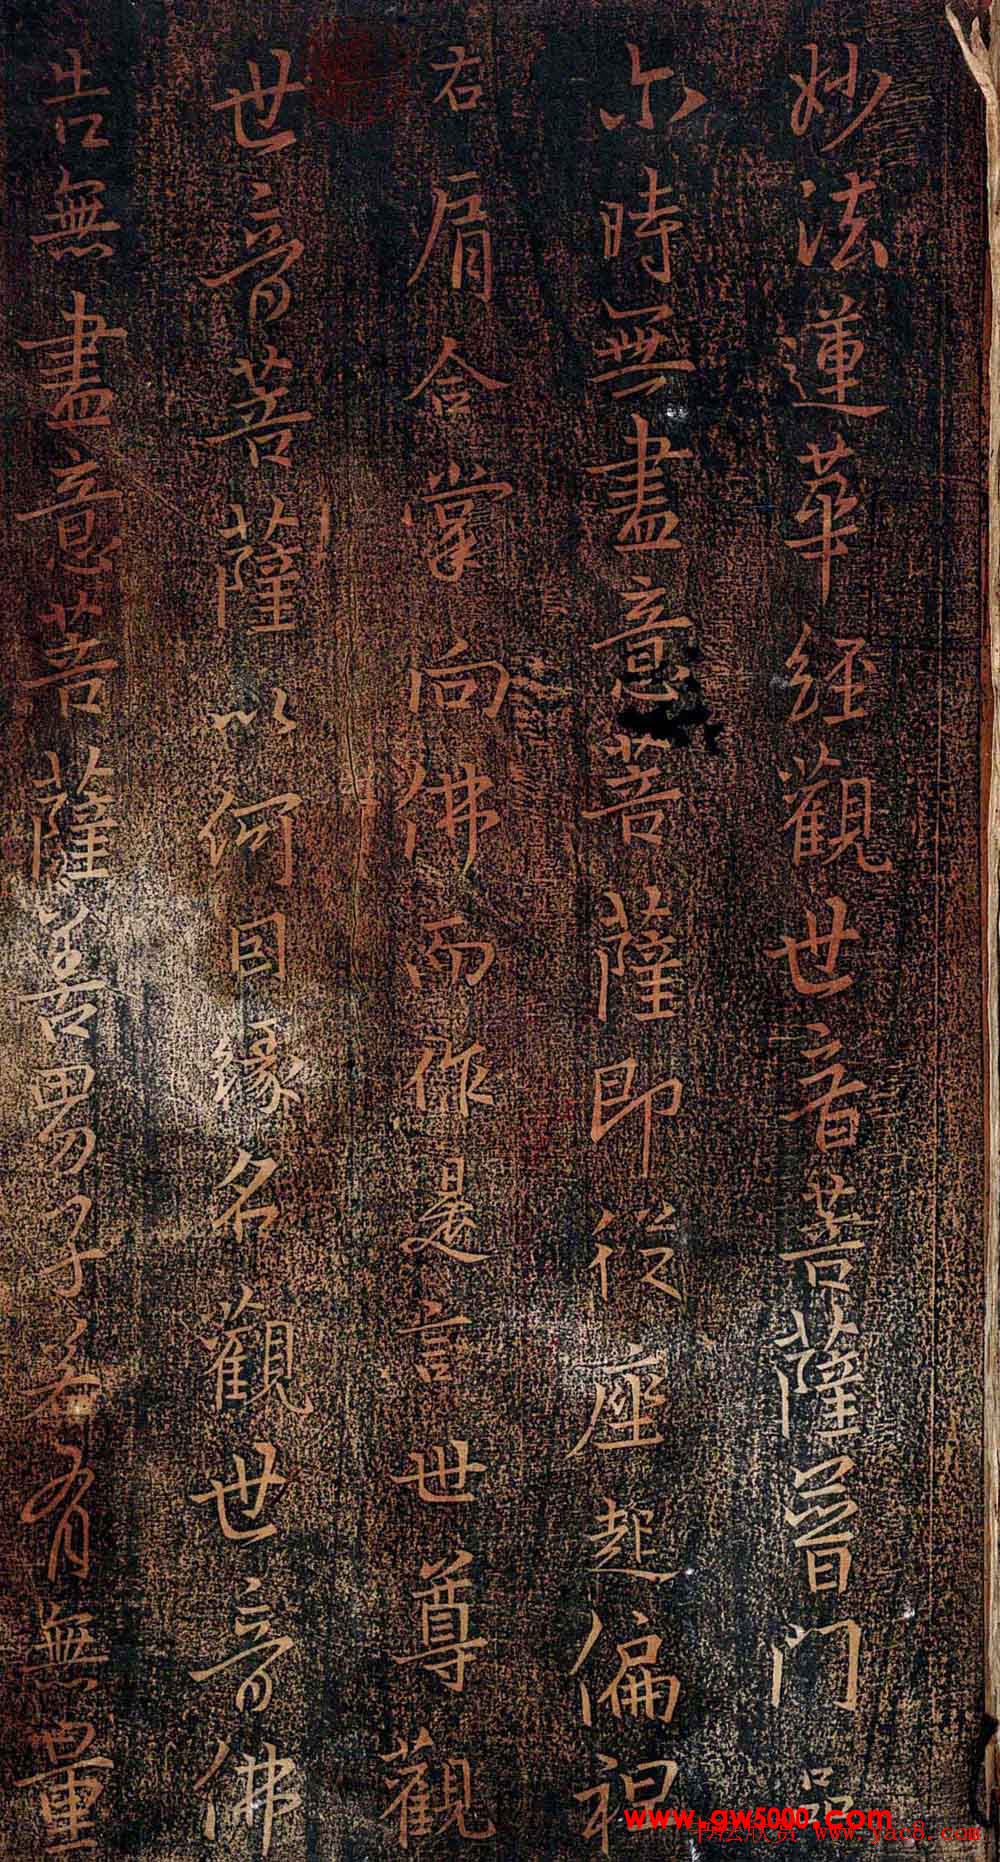 妙法蓮華經觀世音菩薩普門品
尒時無盡意菩薩即從座起偏袒
右肩合掌向佛而作是言世尊觀
世音菩薩以何因緣名觀世音佛
告無盡意菩薩善男子若有無量
www.gw5000.com
書法欣賞 www.yac8.com